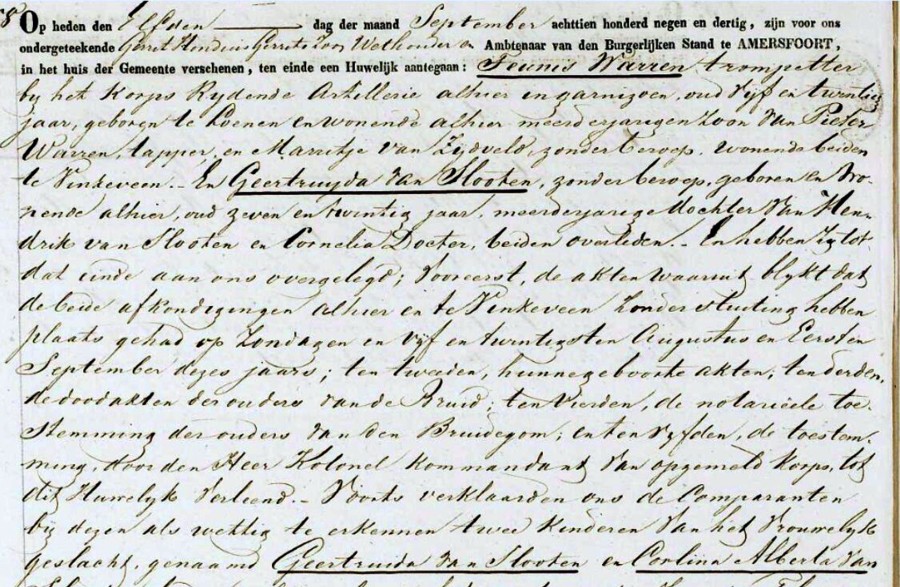 Op heden den Elfden dag der maand September achttien honderd negen en dertig, zijn voor ons
ondergeteekende Gerret Hendricus Gerrits Zoon Wethouder en Ambtenaar van den Burgerlijken Stand te AMERSFOORT,
in het huis der Gemeente verschenen, ten einde een Huwelijk aantegaan: Teunis Warren, trompetter
by het Korps Rydende Artillerie alhier in garnizoen, oud Vijf en twintig
jaar, geboren te Loenen en wonende alhier meerderjarigen zoon van Pieter
Warren, tapper, en Marritje van Zijdveld, zonder beroep, wonende beiden
te Vinkeveen. - En Geertruyda van Slooten, zonder beroep, geboren en wo-
nende alhier, oud zeven en twintig jaar, meerderjarige dochter van Hen-
drik van Slooten en Cornelia Docter, beiden overleden. - En hebben zy tot
dat einde aan ons overgelegd; Vooreerst, de akten waaruit blykt dat
de beide afkondigingen alhier en te Vinkeveen zonder stuiting hebben
plaats gehad op Zondagen en vijf en twintigsten Augustus en Eersten
September dezes jaars; ten tweeden, hunne geboorte akten; ten derden,
de doodakten der ouders van de Bruid; ten Vierden, de notariëele toe-
stemming der ouders van den Bruidegom; en ten vyfden, de toestem-
ming, door den Heer Kolonel Kommandant van opgemeld Korps, tot
dit Huwelyk verleend. - Voorts verklaarden ons de Comparanten
by dezen als wettig te erkennen twee kinderen van het vrouwelyk
geslacht, genaamd Geertruida van Slooten en Carlina Alberta van